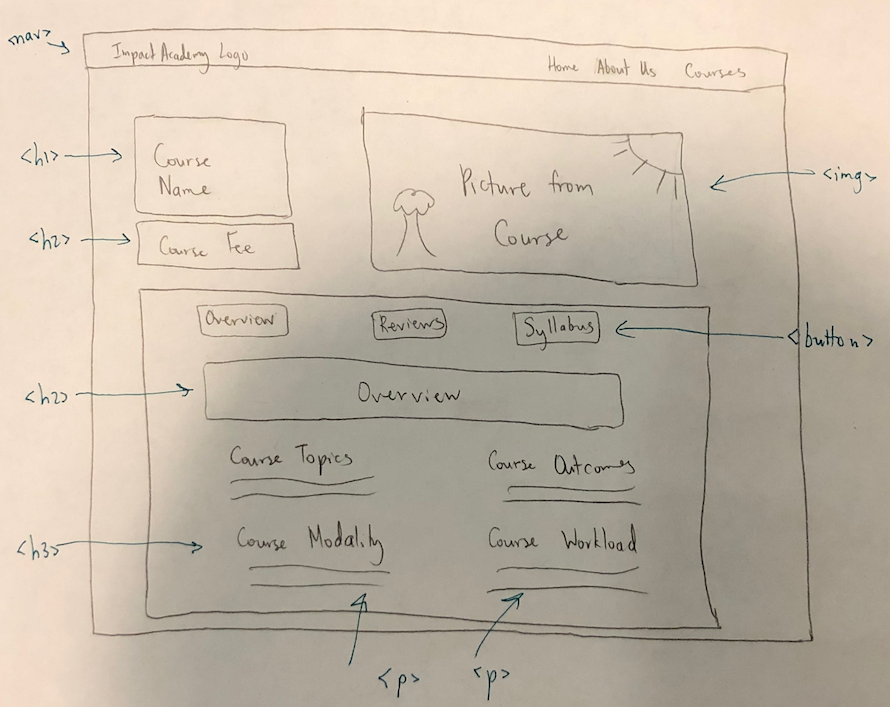 <nav>
Impact Academy Logo
Home About Us Courses
<h1>
Course
Name
Picture from
Course
<img>
<h2>
Course Fee
Overview
Reviews
Syllabus
<button>
<h2>
Overview
Course Topics
Course Outcomes
<h3>
Course Modality
Course Workload
<p>
<p>